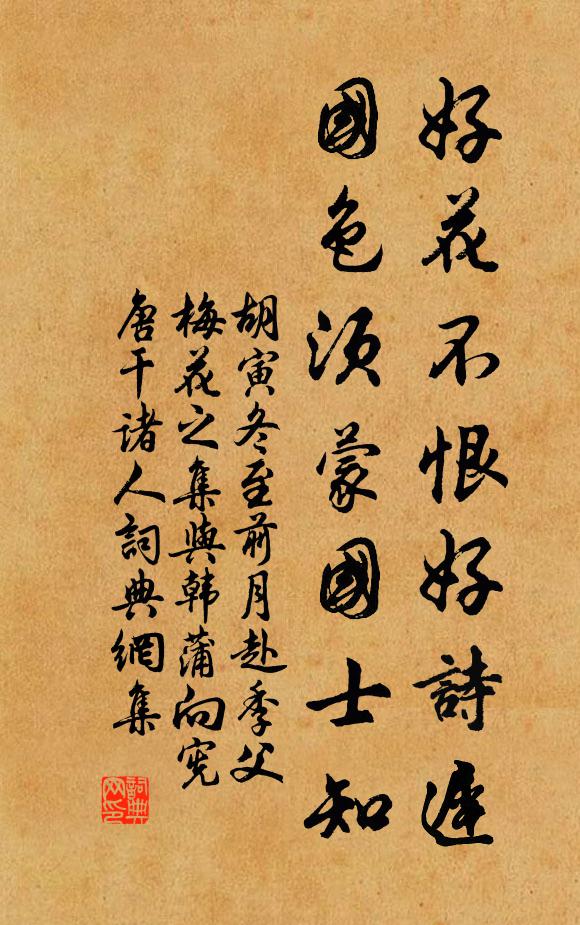 好花不恨好詩遲
國色須蒙國士知
胡寅冬至前月赴季父
梅花之集與韩蒲向宪
唐干诸人詞典網集
詞典网印